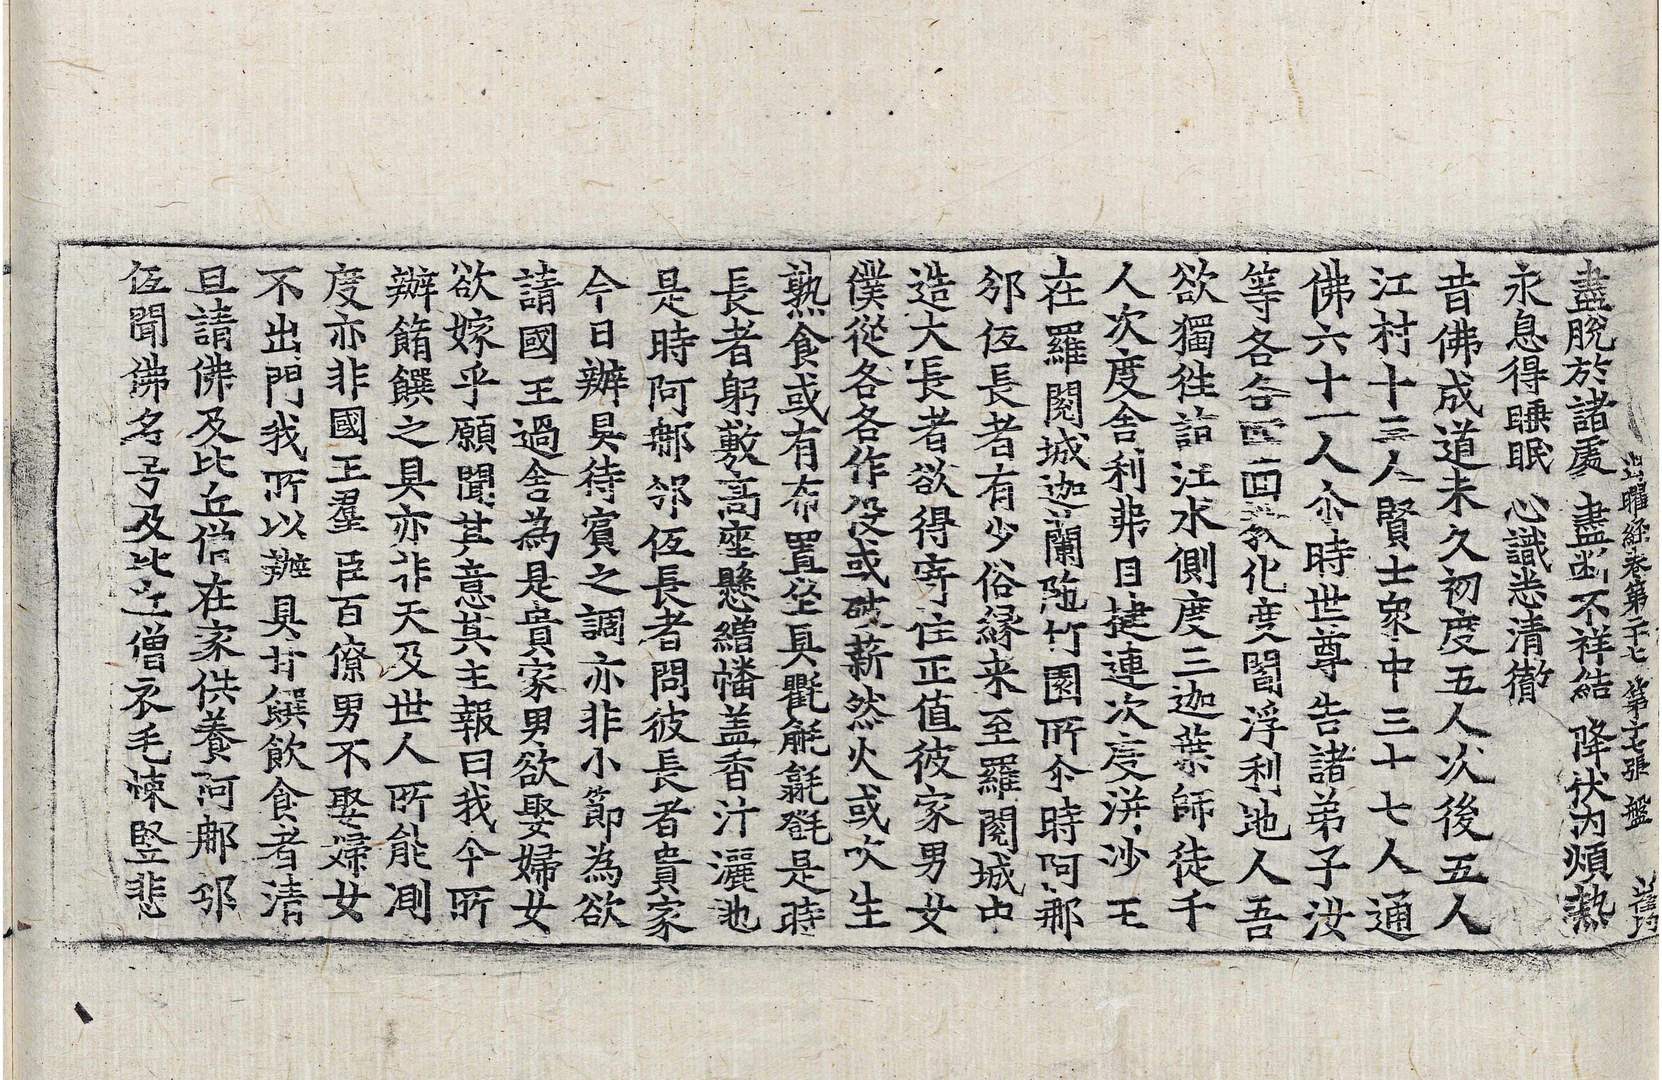 出曜經卷第二十七 第十七張 盤
盡脫於諸處 盡斷不祥結 降伏内煩熱
永息得睡眠 心識悉清徹
昔佛成道未久初度五人次後五人
江村十三人賢士衆中三十七人通
佛六十一人尒時世尊告諸弟子汝
等各各四面教化度閻浮利地人吾
欲獨徃詣江水側度三迦葉師徒千
人次度舍利弗目揵連次度洴沙王
在羅閱城迦蘭陁竹園所尒時阿那
邠伍長者有少俗縁来至羅閱城中
造大長者欲得寄住正值彼家男女
僕從各各作役或破薪然火或吹生
熟食或有布置坐具氍毹㲪㲪是時
長者躬敷高座懸繒幡盖香汁灑地
是時阿那邠伍長者問彼長者貴家
今日辦具待賓之調亦非小節為欲
請國王過舍為是貴家男欲娶婦女
欲嫁乎願聞其意其主報曰我今所
辦餚饌之具亦非天及世人所能測
度亦非國王羣臣百僚男不娶婦女
不出門我所以辦具甘饌飲食者清
旦請佛及比丘僧在家供養阿那邠
伍聞佛名号及比丘僧衣毛悚竪悲